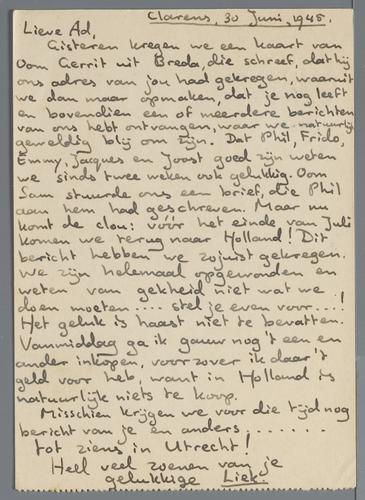 Clarens, 30 Juni, 1945.
Lieve Ad,
Gisteren kregen we een kaart van
Oom Gerrit uit Breda, die schreef, dat hij
ons adres van jou had gekregen, waaruit
we dan maar opmaken, dat je nog leeft
en bovendien een of meerdere berichten
van ons hebt ontvangen, waar we natuurlijk
geweldig blij om zijn. Dat Phil, Frido,
Emmy, Jacques en Joost goed zijn weten
we sinds twee weken ook gelukkig. Oom
Sam stuurde ons een brief, die Phil
aan hem had geschreven. Maar nu
komt de clou: vóór het einde van Juli
komen we terug naar Holland! Dit
bericht hebben we zojuist gekregen.
We zijn helemaal opgewonden en
weten van gekheid niet wat we
doen moeten .... stel je even voor...!
Het geluk is haast niet te bevatten.
Vanmiddag ga ik gauw nog 't een en
ander inkopen, voor zover ik daar 't
geld voor heb, want in Holland is
natuurlijk niets te koop.
Misschien krijgen we voor die tijd nog
bericht van je en anders .......
tot ziens in Utrecht!
Heel veel zoenen van je
gelukkige Liek.